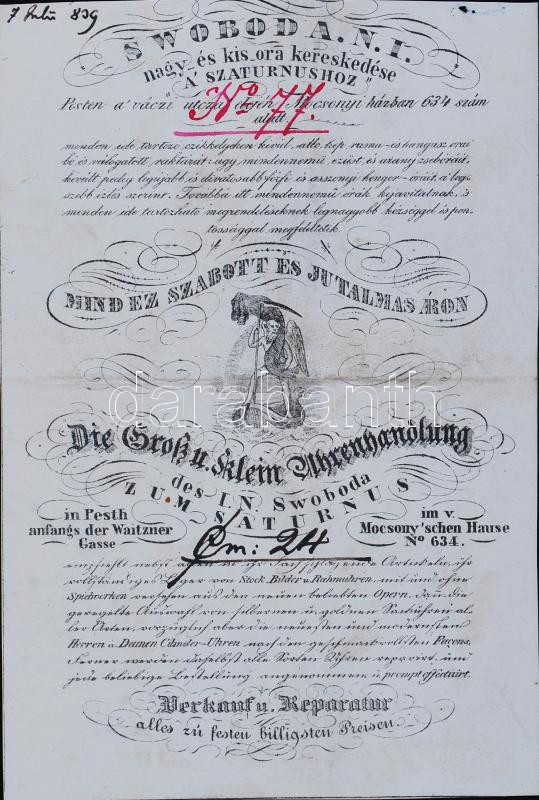 7 839
SWOBODA. N. I.
nagy és kis ora kereskedése
"A' SZATURNUSHOZ"
Pesten a' váczi utcza elején Mocsonyi házban 634 szám
alatt
No 77.
minden ide tartozó czikkelyeken kívül, állo, kép, ráma-és hangász órai
bö és válogatott, raktárát: ugy mindennemü, ezüst és arany zseboráit,
kivált pedig legujabb és divatosabb férfi és asszonyi henger-óráit, a leg-
szebb izlés szerint. Továbbá itt mindennemü óráik kijavitatnak, 's
minden ide tartozható megrendeléseknek legnagyobb készséggel és pon-
tossággal megfeleltetik.
MIND EZ SZABOTT ES JUTALMAS ÁRON
darabanth
Die Groß u. Klein Uhrenhandlung
des I. N. Swoboda
ZUM SATURNUS
in Pesth
anfangs der Waitzner
Gasse
im v.
Mocsony'schen Hause
No 634.
Cm: 24
empfiehlt nebst allen in ihr Fach schlagende Artikeln, ihr
vollständiges Lager von Stock, Bilder u. Rahmuhren, mit und ohne
Spielwerken versehen aus den neuen beliebten Opern. Dann die
geregelte Auswahl von silbernen u. goldnen Sackuhren al-
ler Arten, vorzüglich aber die neuesten und modernsten
Herren u. Damen Cilinder-Uhren nach den geschmackvollsten Façons.
Ferner werden daselbst alle Sorten Uhren reparirt, und
jede beliebige Bestellung angenommen u. prompt effectuirt.
Verkauf u. Reparatur
alles zu festen billigsten Preisen.